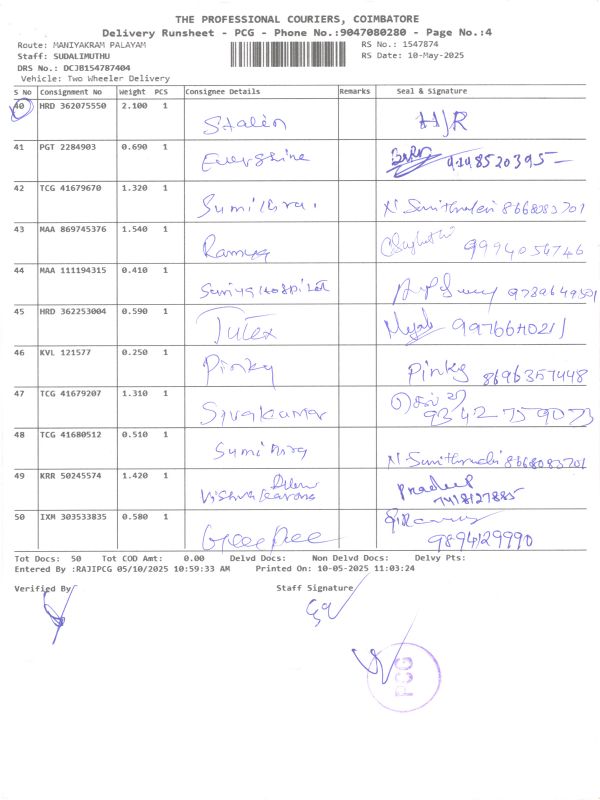 THE PROFESSIONAL COURIERS, COIMBATORE
Delivery Runsheet - PCG - Phone No.:9047080280 - Page No.:4
Route: MANIYAKRAM PALAYAM RS No.: 1547874
Staff: SUDALIMUTHU RS Date: 10-May-2025
DRS No.: DCJB154787404
Vehicle: Two Wheeler Delivery
S No Consignment No Weight PCS Consignee Details Remarks Seal & Signature
40 HRD 362075550 2.100 1 Stalin H/R
41 PGT 2284903 0.690 1 Evershine
42 TCG 41679670 1.320 1 8668083701
43 MAA 869745376 1.540 1 Ramya 9994056746
44 MAA 111194315 0.410 1 9789649501
45 HRD 362253004 0.590 1 9976640211
46 KVL 121577 0.250 1 Pinky Pinky 8696357448
47 TCG 41679207 1.310 1 Sivakumar 9342759073
48 TCG 41680512 0.510 1 8668083701
49 KRR 50245574 1.420 1 Pradeep
7418127885
50 IXM 303533835 0.580 1 9894129990
Tot Docs: 50 Tot COD Amt: 0.00 Delvd Docs: Non Delvd Docs: Delvy Pts:
Entered By :RAJIPCG 05/10/2025 10:59:33 AM Printed On: 10-05-2025 11:03:24
Verified By Staff Signature
PCG